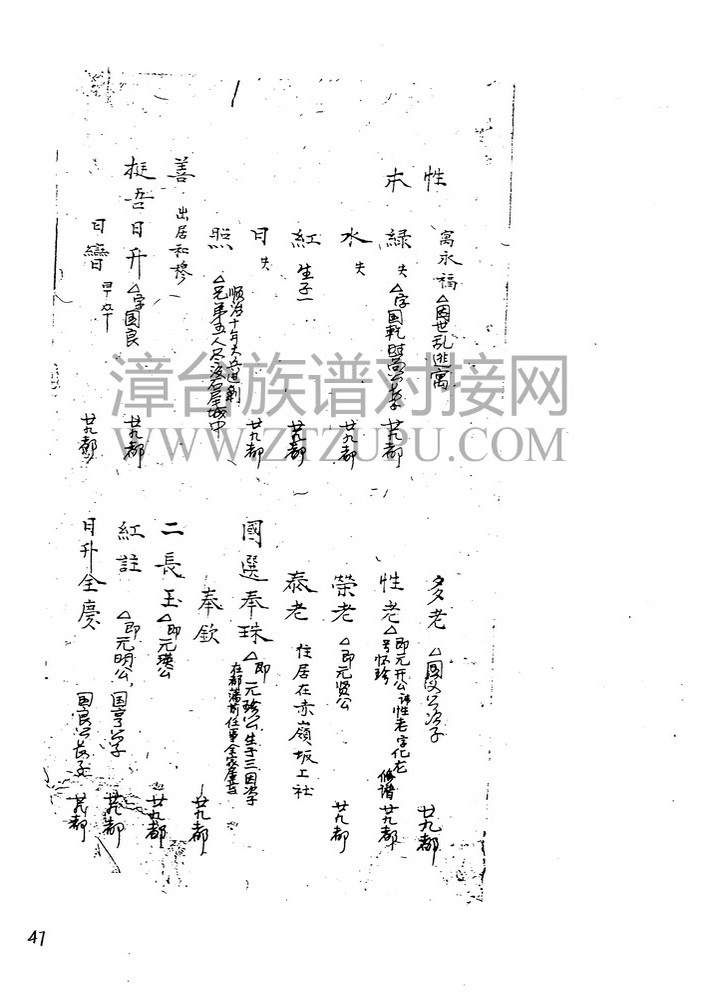 性
寓永福 △因世乱逃寓
木
綠 失 △字国乾 廿九都
水 失 廿九都
紅 生子一 廿九都
日 失 廿九都
照 順治十年大兵進剿
△兄弟五人尽没石尾城中
善 出居和穆
挺吾 日升 △字国良 廿九都
日 早卒 廿九都
多老 △ 次子 廿九都
性老 △即元开公 諱性老字化龙
号怀珍 修谱 廿九都
榮老 △即元贤公 廿九都
泰老 住居在赤嶺坂上社
國選 奉珠 △即元珍公生子三因次子
奉欽 廿九都
二長玉 △即元瑛公 廿九都
紅註 △即元明公, 国亨公子 廿九都
日升全慶 国良公長子 廿九都
漳台族谱对接网
WWW.ZTZUPU.COM
47